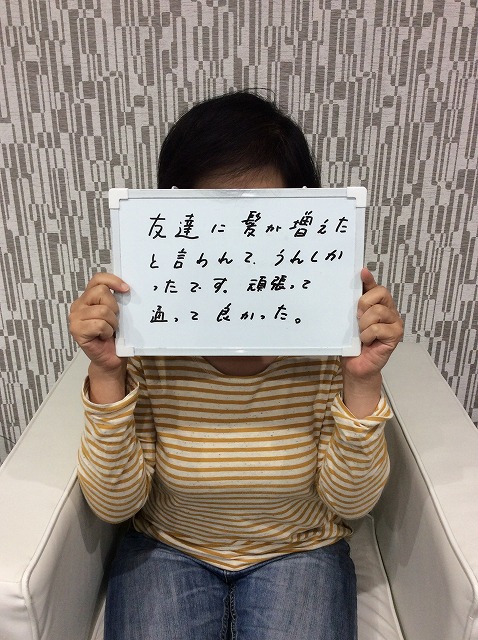 友達に髪が増えた
と言われて、うれしか
ったです。頑張って
通って良かった。